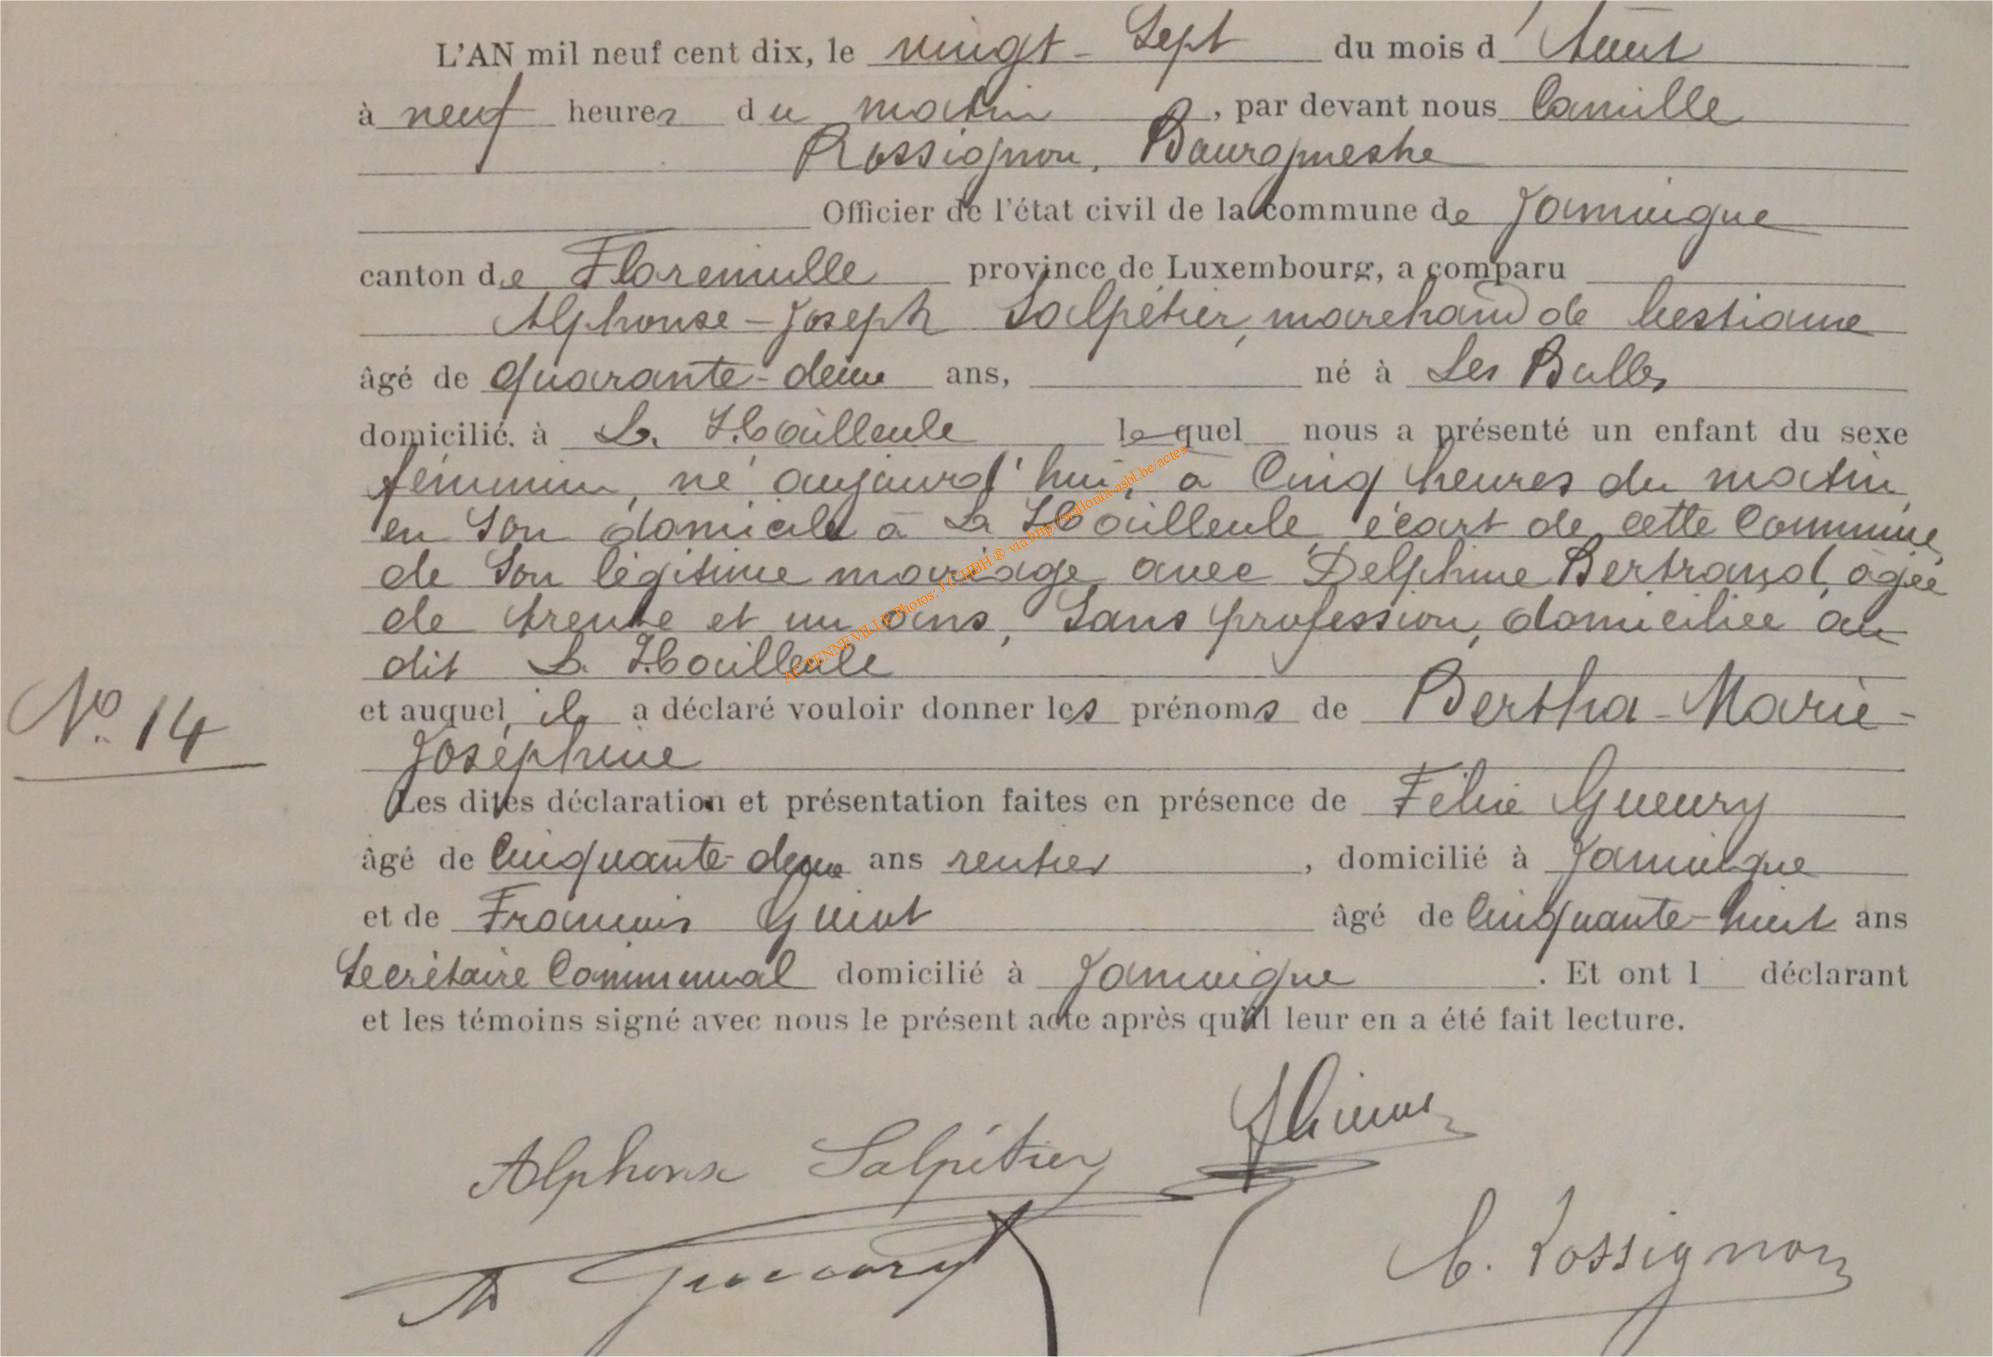 L'AN mil neuf cent dix, le vingt-Sept du mois d'Août
à neuf heures du matin, par devant nous Camille
Rossignon, Bourgmestre
Officier de l'état civil de la commune de Jamoigne
canton de Florenville province de Luxembourg, a comparu
Alphonse-Joseph Salpétier, marchand de bestiaux
âgé de quarante-deux ans, né à Les Bulles
domicilié à La Hailleule lequel nous a présenté un enfant du sexe
féminin, né aujourd'hui, à Cinq heures du matin,
en Son domicile à La Hailleule, écart de cette Commune,
de Son légitime mariage avec Delphine Bertrand, âgée
de trente et un ans, Sans profession, domiciliée au
dit La Hailleule
et auquel il a déclaré vouloir donner les prénoms de Bertha-Marie-
N° 14
Joséphine
Les dites déclaration et présentation faites en présence de Félix Gueury
âgé de Cinquante-deux ans rentier, domicilié à Jamoigne
et de François Guiot âgé de Cinquante-huit ans
Secrétaire Communal domicilié à Jamoigne. Et ont l déclarant
et les témoins signé avec nous le présent acte après qu'il leur en a été fait lecture.
Alphonse Salpétier
Gueury
C. Rossignon